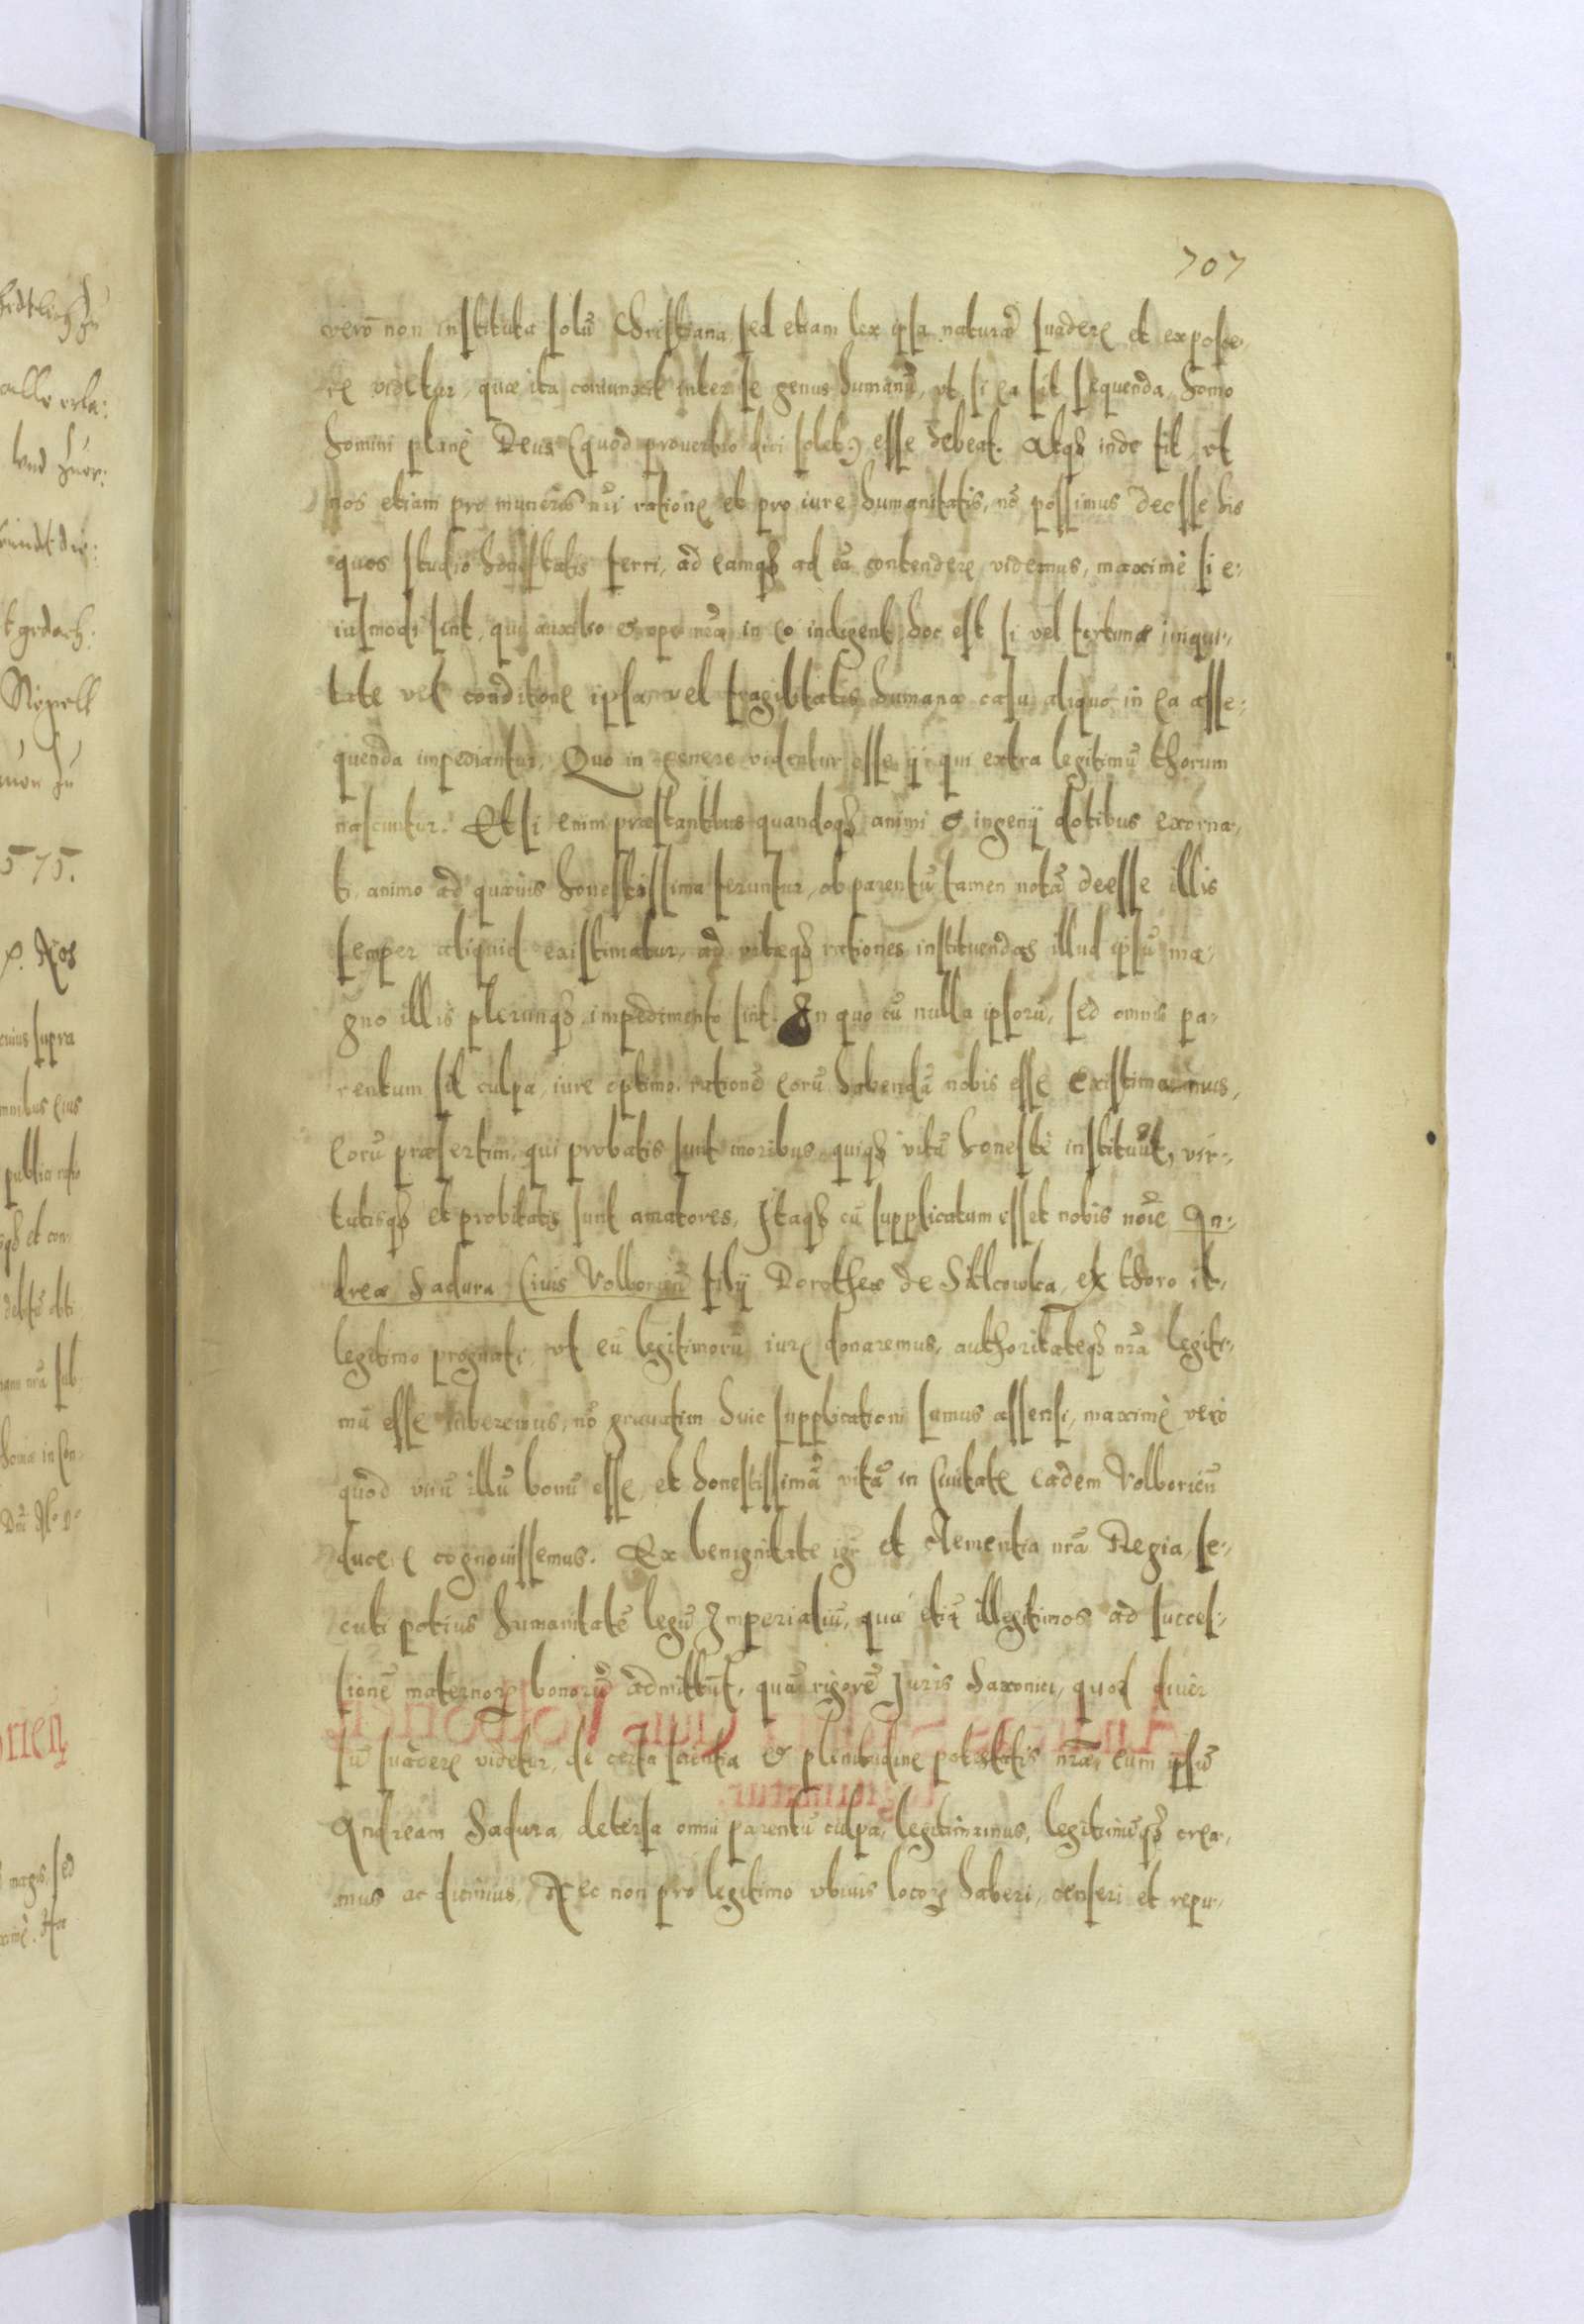 707
vero non instituta solũ Christiana sed etiam lex ipsa naturae suadere et exposce,
re videtur, quae ita coniunxit inter se genus humanũ, vt si ea sit sequenda, homo
homini plane Deus (quod prouerbio dici solet) esse debeat. Atqȝ inde fit, vt
nos etiam pro muneris nr̃i ratione et pro iure humanitatis, nõ possimus deesse his
quos studio honestatis ferri, ad eamqȝ ad eã contendere videmus, maxime si e:
iusmodi sint, qui auxilio & ope nr̃a in eo indigent, hoc est si vel fortunae iniqui:
tate vel conditione ipsa, vel fragilitatis humanae casu aliquo in ea asse:
quenda impediantur, Quo in genere videntur esse ij qui extra legitimũ thorum
nascuntur. Etsi enim praestantibus quandoqȝ animi & ingenij dotibus exorna,
ti, animo ad quaeuis honestissima feruntur, ob parentũ tamen notã deesse illis
semper aliquid existimatur, ad vitaeqȝ rationes instituendas illud ipsũ ma,
gno illis plerunqȝ impedimento sint. In quo cũ nulla ipsorũ, sed omnis pa,
rentum sit culpa, iure optimo rationẽ eorũ habendã nobis esse existimamus,
eorũ praesertim, qui probatis sunt moribus, quiqȝ vitã honeste instituũt, vir:
tutisqȝ et probitatis sunt amatores, Itaqȝ cũ supplicatum esset nobis noĩe An:
dreae Sadura Ciuis Volborien̄ filij Dorotheae de Sitlcowka, ex thoro il,
legitimo prognati, vt eũ legitimorũ iure donaremus, authoritateqȝ nr̃a legiti:
mũ esse iuberemus, nõ grauatim huic supplicationi sumus assensi, maxime vero
quod virũ illũ bonũ esse, et honestissimã vitã in Ciuitate eadem Volborien̄
ducere cognouissemus. Ex benignitate igr̃ et clementia nr̃a Regia, se:
cuti potius humanitatẽ legũ Imperialiũ, quae etiã illegitimos ad succes:
sionẽ maternorꝝ bonorũ admittũt, quã rigorẽ Juris Saxonici, quod diuer
sũ suadere videtur, de certa scientia & plenitudine potestatis nr̃ae, eum ipsũ
Andream Sadura, detersa omni parentũ culpa, legitimamus, legitimũqȝ crea,
mus ac dicimus, Nec non pro legitimo vbiuis locorꝝ haberi, censeri et repu,